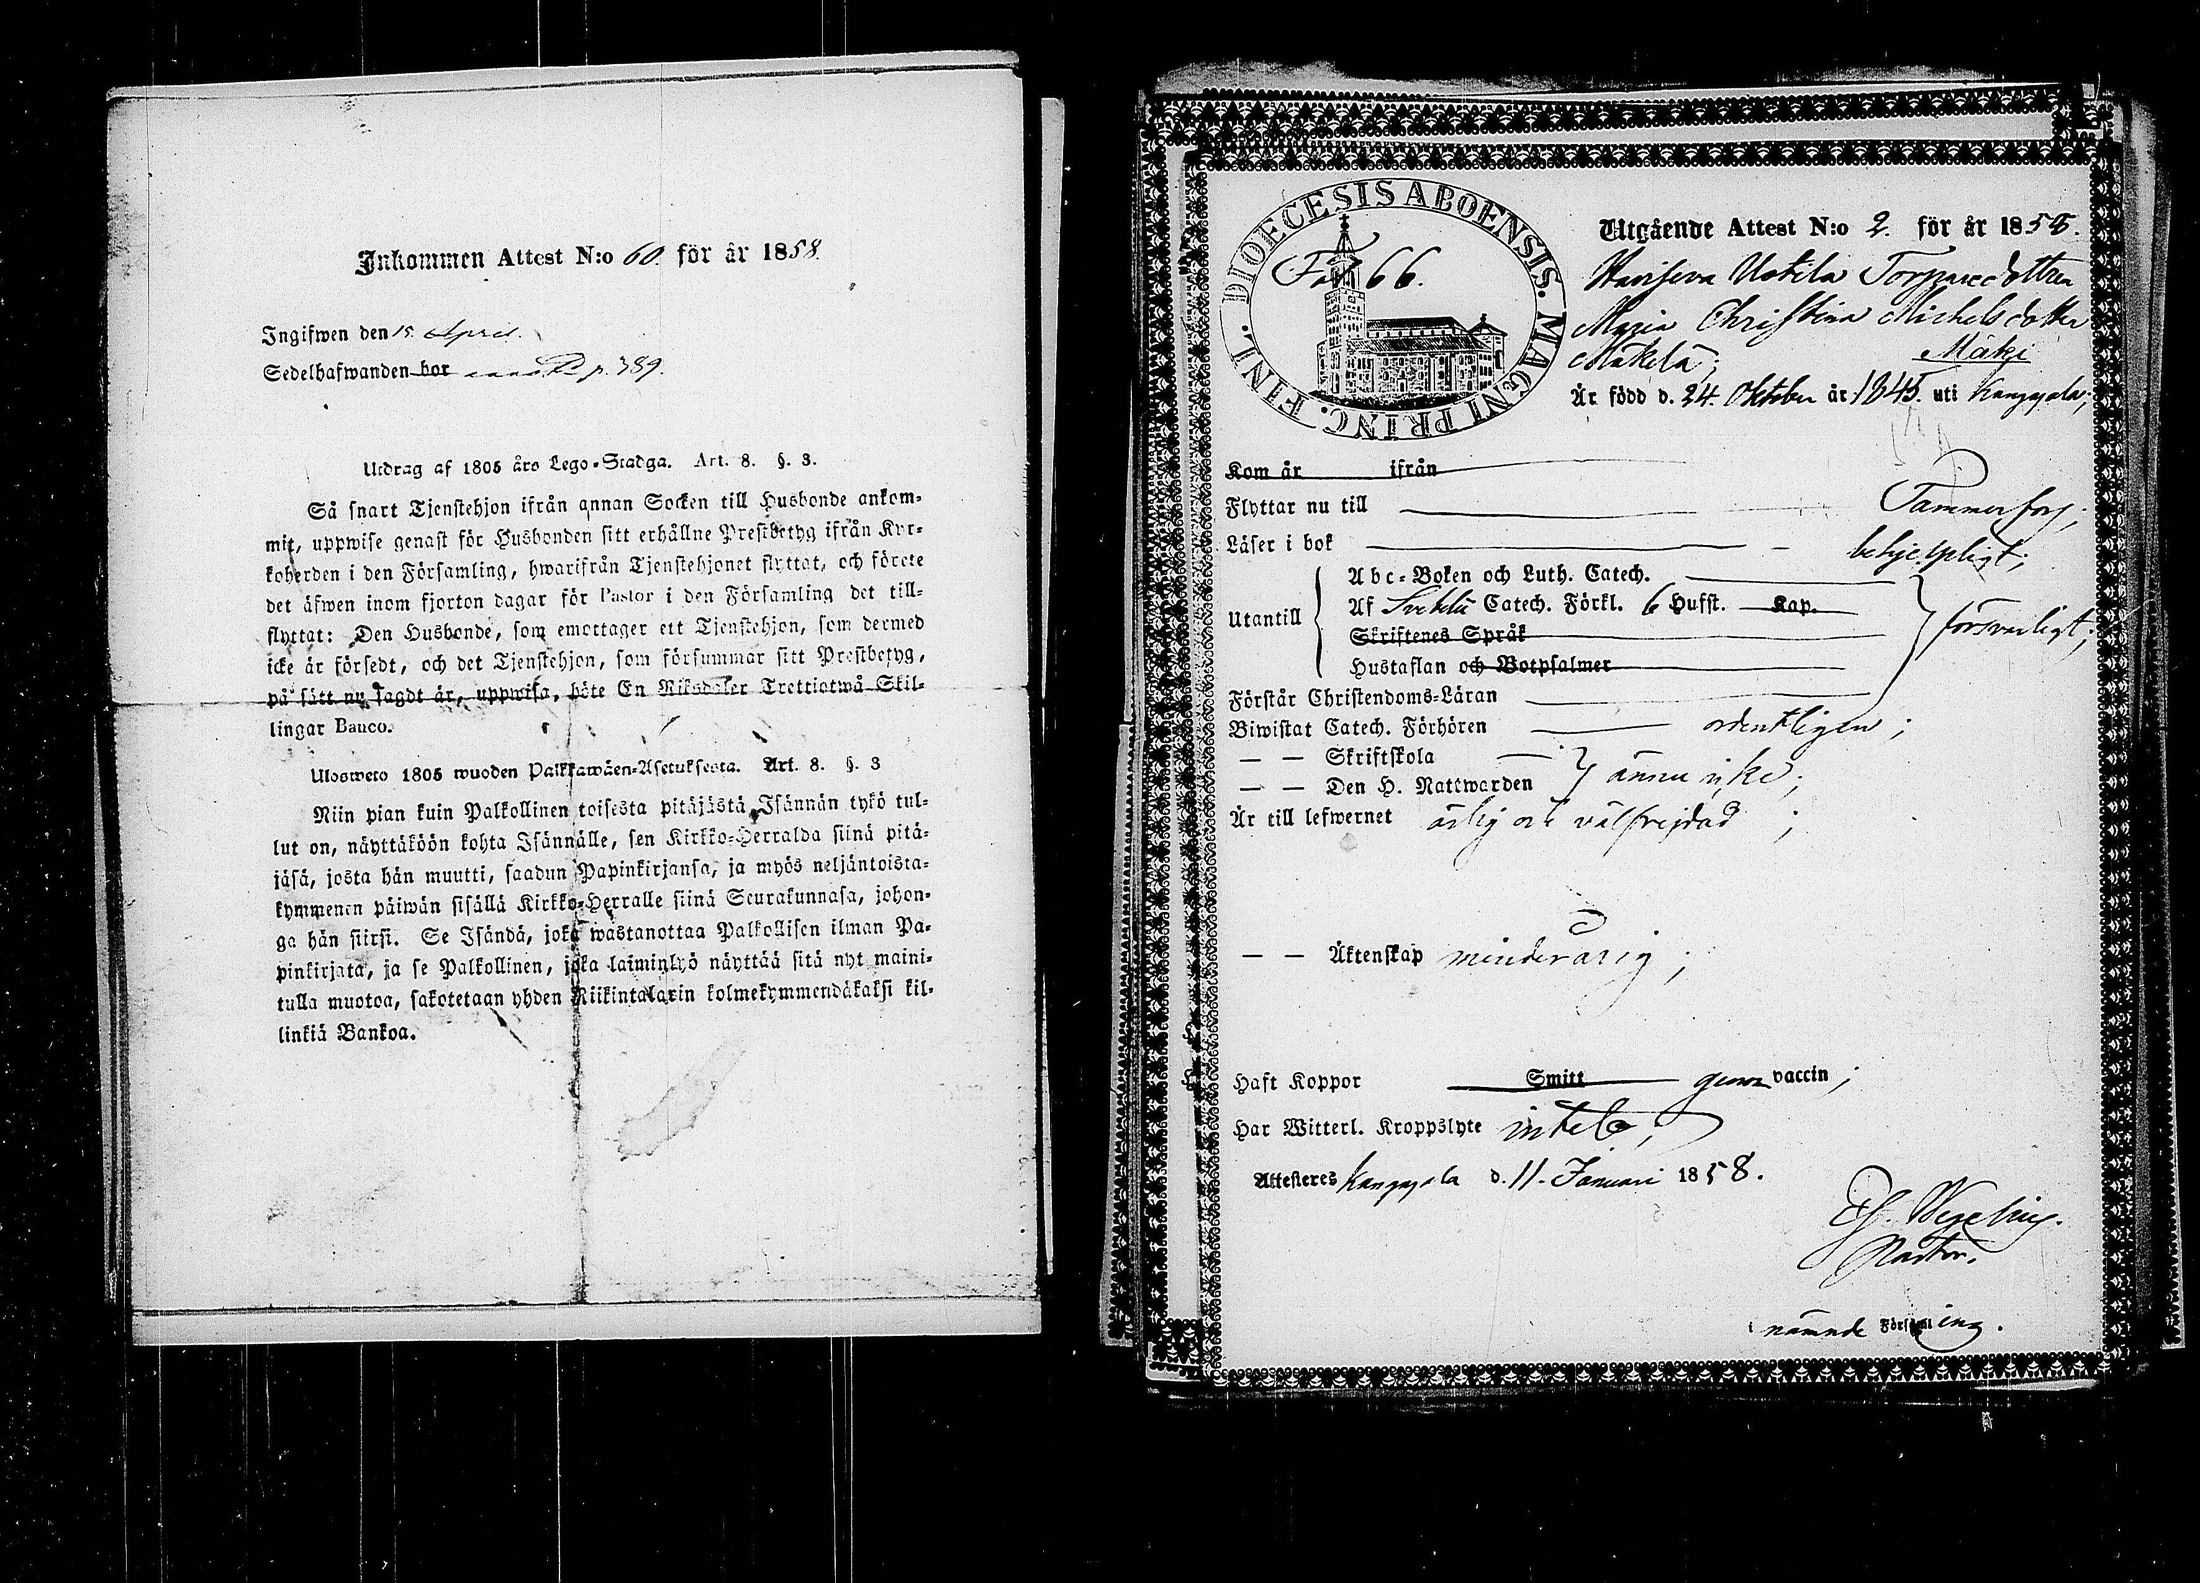 Inkommen Attest N:o 60. för år 1858.
Ingifwen den 15. April.
Sedelhafwanden bor p. 389.
Utdrag af 1805 års Lego-Stadga. Art. 8. §. 3.
Så snart Tjenstehjon ifrån annan Socken till Husbonde ankom-
mit, uppwise genast för Husbonden sitt erhållne Prestbetyg ifrån Kyr-
koherden i den Församling, hwarifrån Tjenstehjonet flyttat, och förete
det äfwen inom fjorton dagar för Pastor i den Församling det till-
flyttat: Den Husbonde, som emottager ett Tjenstehjon, som dermed
icke är försedt, och det Tjenstehjon, som försummar sitt Prestbetyg,
på sätt nu sagdt är, uppwisa, böte En Riksdaler Trettiotwå Skil-
lingar Banco.
Ulosweto 1805 wuoden Palkkawäen-Asetuksesta. Art. 8. §. 3
Niin pian kuin Palkollinen toisesta pitäjästä Isännän tykö tul-
lut on, näyttäköön kohta Isännälle, sen Kirkko-Herralda siinä pitä-
jäsä, josta hän muutti, saadun Papinkirjansa, ja myös neljäntoista-
kymmenen päiwän sisällä Kirkko-Herralle siinä Seurakunnasa, johon-
ga hän siirsi. Se Isändä, joka wastanottaa Palkollisen ilman Pa-
pinkirjata, ja se Palkollinen, joka laiminlyö näyttää sitä nyt maini-
tulla muotoa, sakotetaan yhden Riikintalarin kolmekymmendäkaksi kil-
linkiä Bankoa.
DIOECESIS ABOENSIS. MAGNI PRINC. FINL.
Fol 66.
Utgående Attest N:o 2. för år 1858.
Uotila Torpare dottren
Maria Christina Michelsdotter
Mäkelä, Mäki
Är född d. 24. Oktober år 1845. uti Kangasala;
Kom år ifrån
Flyttar nu till Tammerfors;
Läser i bok behjelpligt;
Utantill
Abc-Boken och Luth. Catech.
Af Svebilii Catech. Förkl. 6 Hufst. Kap.
Skriftenes Språk
Hustaflan och Botpsalmer
försvarligt;
Förstår Christendoms-Läran
Biwistat Catech. Förhören ordentligen;
— — Skriftskola
— — Den H. Nattwarden ännu icke;
Är till lefwernet ärlig och välfrejdad;
— — Äktenskap minderårig;
Haft Koppor Smitt genom vaccin;
Har Witterl. Kroppslyte intet;
Attesteres Kangasala d. 11. Januari 1858.
Pastor.
i nämnde Församling.